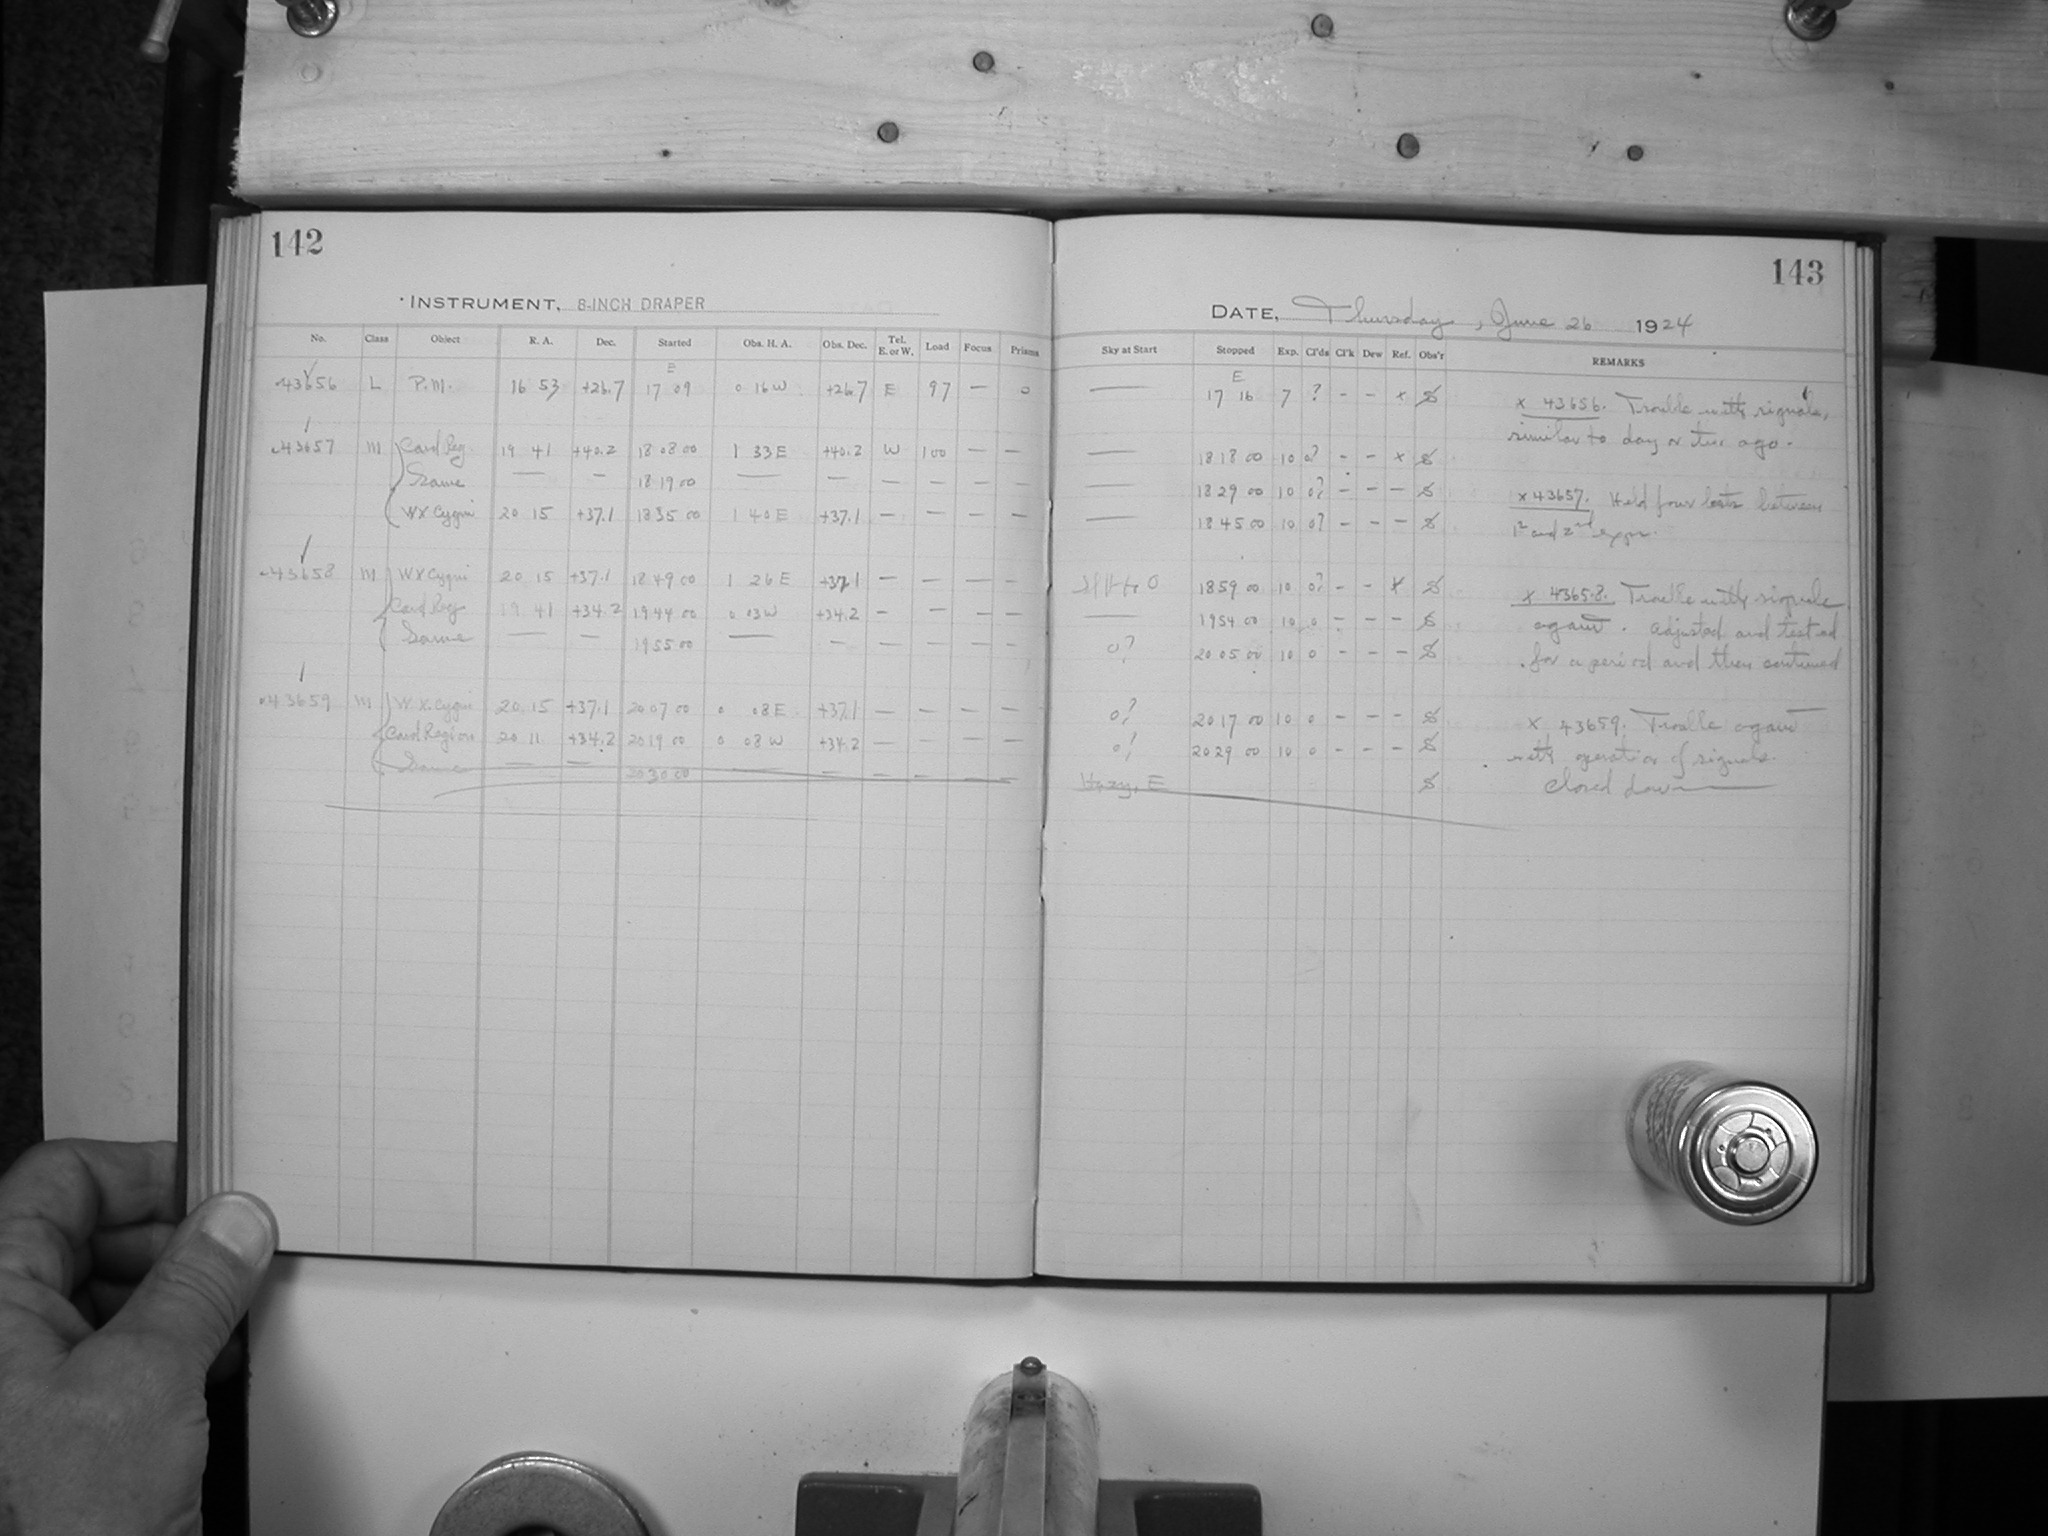 142
143
INSTRUMENT, 8-INCH DRAPER
DATE, Thursday, June 26 1924
No. Class Object R. A. Dec. Started Obs. H. A. Obs. Dec. Tel. E. or W. Load Focus Prisms Sky at Start Stopped Exp. Cl'ds Cl'k Dew Ref. Obs'r REMARKS
E E
43656 L P.M. 16 53 +26.7 17 09 0 16 W +26.7 E 97 — 0 — 17 16 7 ? - - x
x 43656. Trouble with signals,
similar to day or two ago.
43657 M Card Reg. 19 41 +40.2 18 08 00 1 33 E +40.2 W 100 — — — 18 18 00 10 0? - - x
Same — — 18 19 00 — — — — — — — 18 29 00 10 0? - - -
x 43657. Held four between
WX Cygni 20 15 +37.1 18 35 00 1 40 E +37.1 — — — — — 18 45 00 10 0? - - -
1st and 2nd expr.
43658 M WX Cygni 20 15 +37.1 18 49 00 1 26 E +37.1 — — — — 18 59 00 10 0? - - x
x 43658. Trouble with signals
Card Reg 19 41 +34.2 19 44 00 0 03 W +34.2 — — — — — 19 54 00 10 0 - - -
again. Adjusted and tested
Same — — 19 55 00 — — — — — — 0? 20 05 00 10 0 - - -
for a period and then continued
43659 M WX Cygni 20 15 +37.1 20 07 00 0 08 E +37.1 — — — — 0? 20 17 00 10 0 - - -
x 43659. Trouble again
Card Region 20 11 +34.2 20 19 00 0 08 W +34.2 — — — — 0? 20 29 00 10 0 - - -
with operation of signals.
Same — — 20 30 00 — — — — — — Hazy, E
Closed down